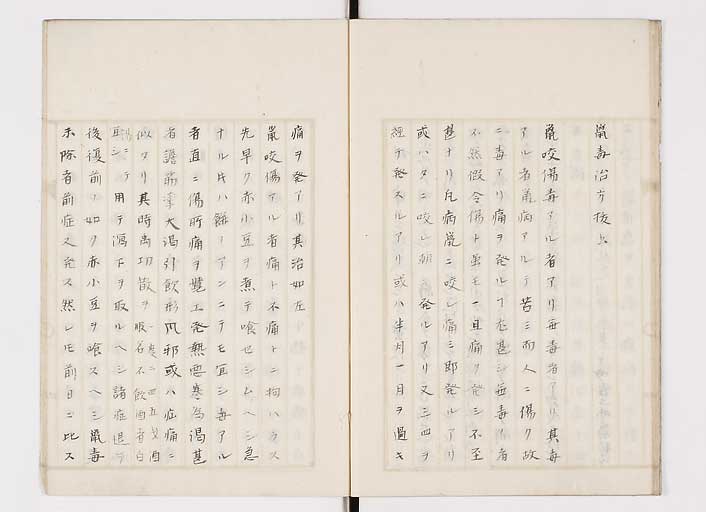 鼠毒治方抜上
鼠咬傷毒アル者アリ毎毒者アリ其毒
アル者鼠病アルテ苦ミ而人ニ傷ク故
ニ毒アリ痛ヲ発ルヿ尤甚シ毎毒ノ者
不然假令傷ト虽モ一旦痛ク発シ不至
甚ナリ凡病鼠ニ咬レ痛ミ即発ルアリ
或ハタニ咬レ朝発ルアリ又三四ヲ
経テ発スルアリ或ハ半月一月ヲ過キ
痛ヲ発アリ其治如左
鼠咬傷テル者痛ト不痛トニ拘ハラス
先早ク赤小豆ヲ煮テ喰セシムヘシ急
ナル片ハ餅ノアンニテモ宜シ毒アル
者直ニ傷所痛ヲ覚エ発熱悪寒為渇甚
者譫筋攣大渇引飲形風邪或ハ疝痛ニ
似タリ其時禹功散ヲ一匁ニ四五匁酒服若不飲酒者白湯ニテ
用テ瀉下ヲ取ルヘシ諸症退テ
後復前ノ如ク赤小豆ヲ喰スヘシ鼠毒
未除者前症又発ス然レ圧前日ニ比ス